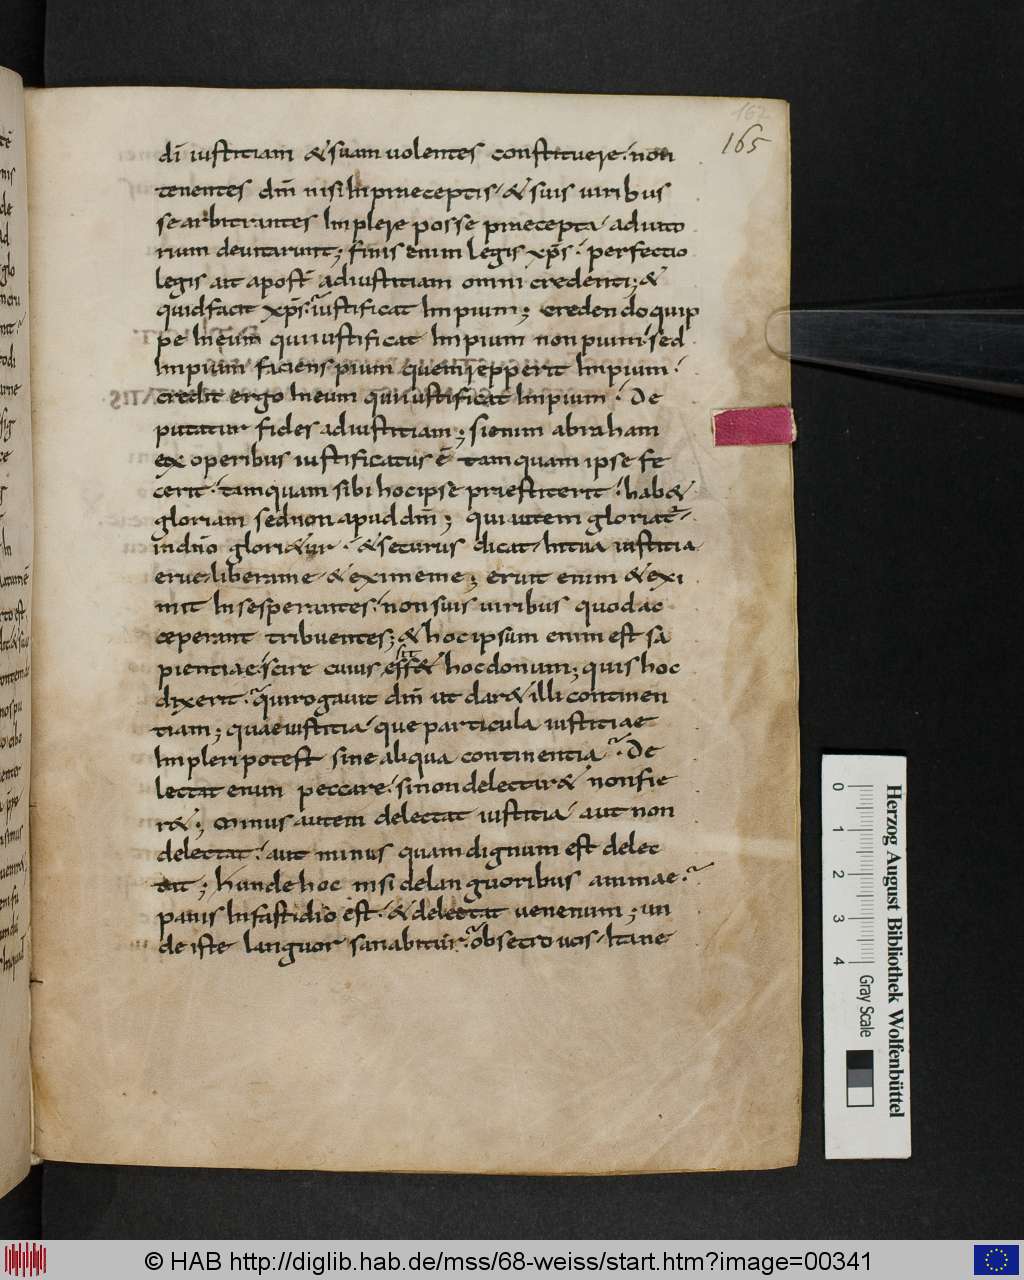 162
165
di iustitiam & suam uolentes constituere. non
tenentes dm̄ nisi In praeceptis. & suis uiribus
se arbitrantes Implere posse praecepta. adiuto
rium deuitarunt; finis enim legis xp̄s. perfectio
legis ait apost̄ ad iustitiam omni credenti; &
quid facit xp̄s. iustificat Impium; credendo quip
pe In eum qui iustificat Impium non puniri sed
Impium faciens pium quem repperit Impium.
credit ergo In eum qui iustificat Impium. De
putatur fides ad iustitiam; si enim abraham
ex operibus iustificatus ē tamquam ipse fe
cerit. tamquam sibi hoc ipse praestiterit. hab&
gloriam sed non apud dm̄; qui autem gloriat̄
in dn̄o glori&ur. & securus dicat. In tua iustitia
erue. libera me. & exime me; eruit enim & exi
mit In se sperantes. non suis uiribus quod ac
ceperant tribuentes; & hoc ipsum enim est sa
pientiae. scire cuius ess& hoc donum; quis hoc
sit
dixerit. qui rogauit dm̄ ut dar& illi continen
tiam; quae iustitia. que particula iustitiae
Impleri potest sine aliqua continentia. De
lectat enim peccare. si non delectar& non fie
r&; minus autem delectat iustitia aut non
delectat. aut minus quam dignum est delec
tat; hunde hoc nisi de languoribus animae.
panis In fastidio est. & delectat uenenum; un
de iste languor sanabitur. obsecro uos.
Herzog August Bibliothek Wolfenbüttel
0 1 2 3 4
Gray Scale
© HAB http://diglib.hab.de/mss/68-weiss/start.htm?image=00341